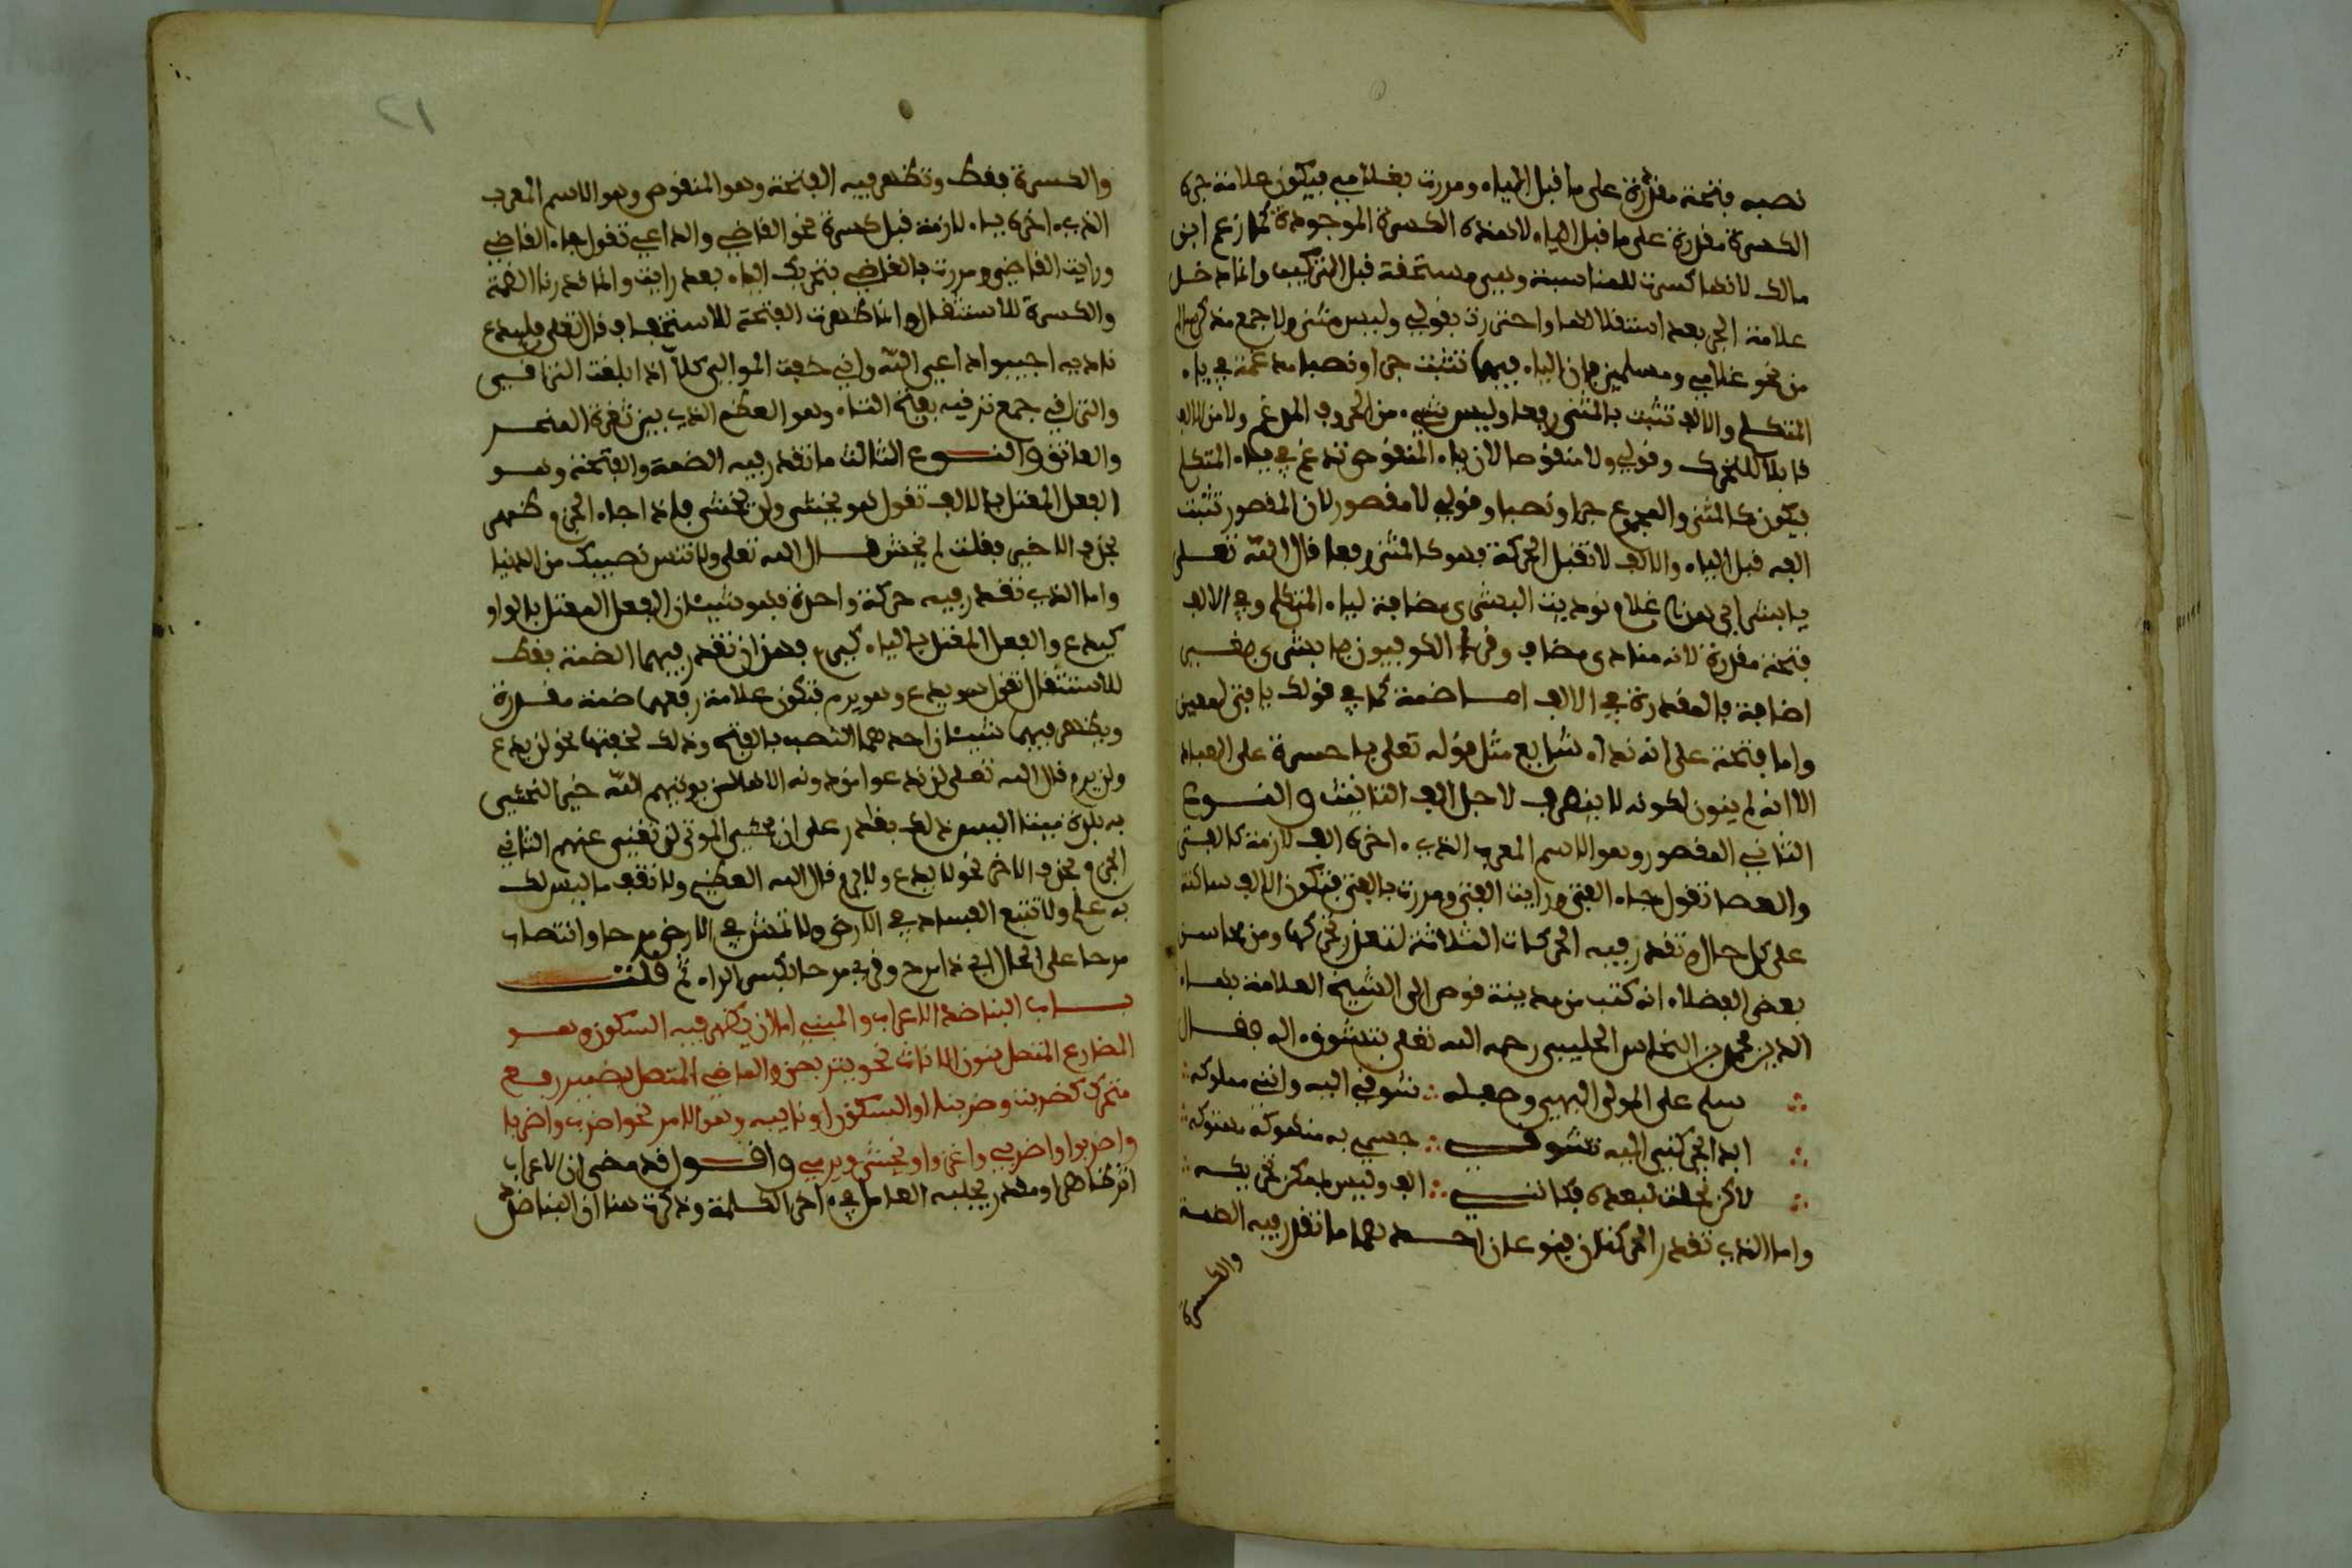 نصبه فتحة مقدرة على ما قبل الياء ومررت بغلامي فيكون علامة جره
الكسرة مقدرة على ما قبل الياء لا هذه الكسرة الموجودة كما زعم ابن
مالك لانها كسرت للمناسبة وهي مستحقة قبل التركيب وانما دخل
علامة الجر بعد استقلالها واحترزت بقولي وليس مثنى ولا جمع مذكر سالم
من نحو غلامي ومسلمي فان الياء فيهما تثبت جرا ونصبا مدغمة في ياء
المتكلم والالف تثبت بالمثنى رفعا وليس شيء من الحروف المدغم ولا من الالف
قابلا للتحرك وقولي ولا منقوصا لان ياء المنقوص تدغم في ياء المتكلم
فيكون كالمثنى والمجموع جرا ونصبا وقولي لا مقصور لان المقصور تثبت
الفه قبل الياء والالف لا تقبل الحركة فهو كالمثنى رفعا قال الله تعلى
يا بشراي هذا غلام نوديت البشرى مضافة لياء المتكلم وفي الالف
فتحة مقدرة لانه منادى مضاف وقرا الكوفيون يا بشرى بغير
اضافة فالمقدرة في الالف اما ضمة كما في قولك يا فتى لمعين
واما فتحة على انه نداء شايع مثل قوله تعلى يا حسرة على العباد
الا انه لم ينون لكونه لا ينصرف لاجل الف التانيث والنوع
الثاني المقصور وهو الاسم المعرب الذي ءاخره الف لازمة كالفتى
والعصا تقول جاء الفتى ورايت الفتى ومررت بالفتى فتكون الالف ساكنة
على كل حال وتقدر فيه الحركات الثلاثة لتعذر تحركها ومن محاسن
بعض الفضلاء انه كتب من مدينة قوص الى الشيخ العلامة بهاء
الدين محمد بن النحاس الحلبي رحمه الله تعلى يتشوق اليه فقال
سلم على المولى البهي وصف له ∴ شوقي اليه وانني مملوكه
ابدا يحركني اليه تشوقي ∴ جسمي به مشطوكة منهوكه
لاكن نحلت لبعده فكانني ∴ الف وليس بممكن تحريكه
واما الذي تقدر الحركتان فنوعان احدهما ما تقدر فيه الضمة
والكسرة
٢١
والكسرة فقط وتظهر فيه الفتحة وهو المنقوص وهو الاسم المعرب
الذي ءاخره ياء لازمة قبل كسرة نحو القاضي والداعي تقول جاء القاضي
ورايت القاضي ومررت بالقاضي بتحريك الياء بعد رايت وانما قدرنا الضمة
والكسرة للاستثقال وانما ظهرت الفتحة للاستخفاف قال تعلى فليدع
ناديه اجيبوا داعي الله واني خفت الموالي كلا اذا بلغت التراقي
والتراقي جمع ترقية بفتح التاء وهو العظم الذي بين ثغرة النحر
والعاتق والنوع الثالث ما تقدر فيه الضمة والفتحة وهو
الفعل المعتل بالالف تقول هو يخشى ولن يخشى فاذا جاء الجزم ظهر
بحذف الاخير فقلت لم يخش قال الله تعلى ولا تنس نصيبك من الدنيا
واما الذي تقدر فيه حركة واحدة فهو شيئان الفعل المعتل بالواو
كيدع والفعل المعتل بالياء كيرم فهذان تقدر فيهما الضمة فقط
للاستثقال تقول هو يدع وهو يرم فتكون علامة رفعهما ضمة مقدرة
ويظهر فيهما شيئان احدهما النصب بالفتح وذلك لخفتها نحو لن يدع
ولن يرم قال الله تعلى لن ندعوا من دونه الاها لن يوتيهم الله خيرا لنحيي
به بلدة ميتا اليس ذلك بقادر على ان يحيي الموتى لن تغني عنهم الثاني
الجزم بحذف الاخر نحو لا يدع ولا يرم قال الله العظيم ولا تقف ما ليس لك
به علم ولا تتبع الفساد في الارض ولا تمش في الارض مرحا وانتصاب
مرحا على الحال اي ذا مرح وقرئ مرحا بكسر الراء ثم قلت
باب البنا ضد الاعراب والمبني اما ان يظهر فيه السكون وهو
المضارع المتصل بنون الاناث نحو يتربصن والماضي المتصل بضمير رفع
متحرك كضربت وضربنا او السكون او نايبه وهو الامر نحو اضرب واضربا
واضربوا واضربي واغز واو يخش ويرمي واقول قد مضى ان الاعراب
اثر ظاهر او مقدر يجلبه العامل في ءاخر الكلمة وذكرت هنا ان البنا ضد